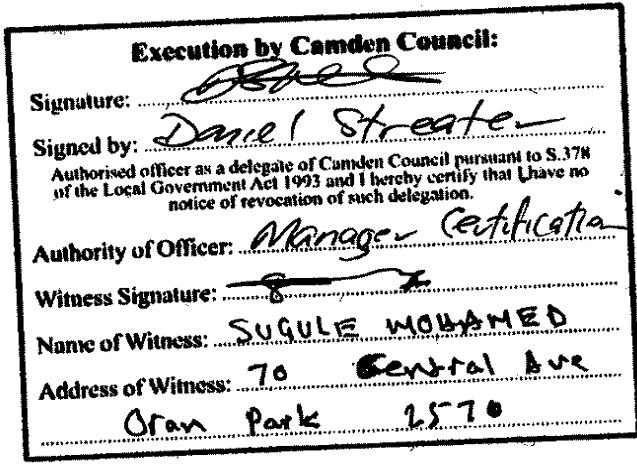 Execution by Camden Council:
Signature:
Signed by: Daniel Streater
Authorised officer as a delegate of Camden Council pursuant to S.378
of the Local Government Act 1993 and I hereby certify that I have no
notice of revocation of such delegation.
Authority of Officer: Manager Certification
Witness Signature:
Name of Witness: SUGULE MOHAMED
Address of Witness: 70 Central Ave
Oran Park 2570